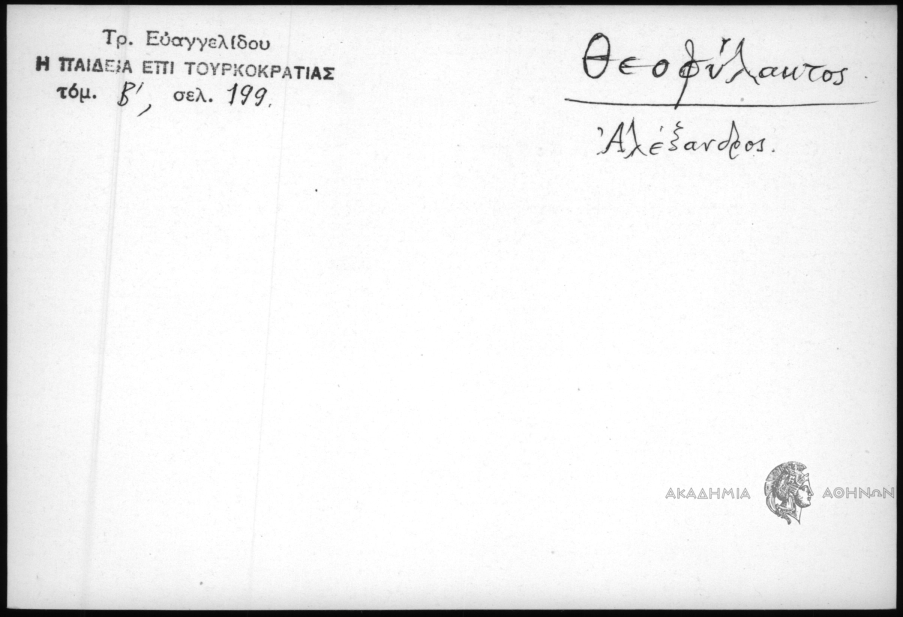 Τρ. Εὐαγγελίδου
Η ΠΑΙΔΕΙΑ ΕΠΙ ΤΟΥΡΚΟΚΡΑΤΙΑΣ
τόμ. Β', σελ. 199.
Θεοφύλακτος
Ἀλέξανδρος.
ΑΚΑΔΗΜΙΑ ΑΘΗΝΩΝ